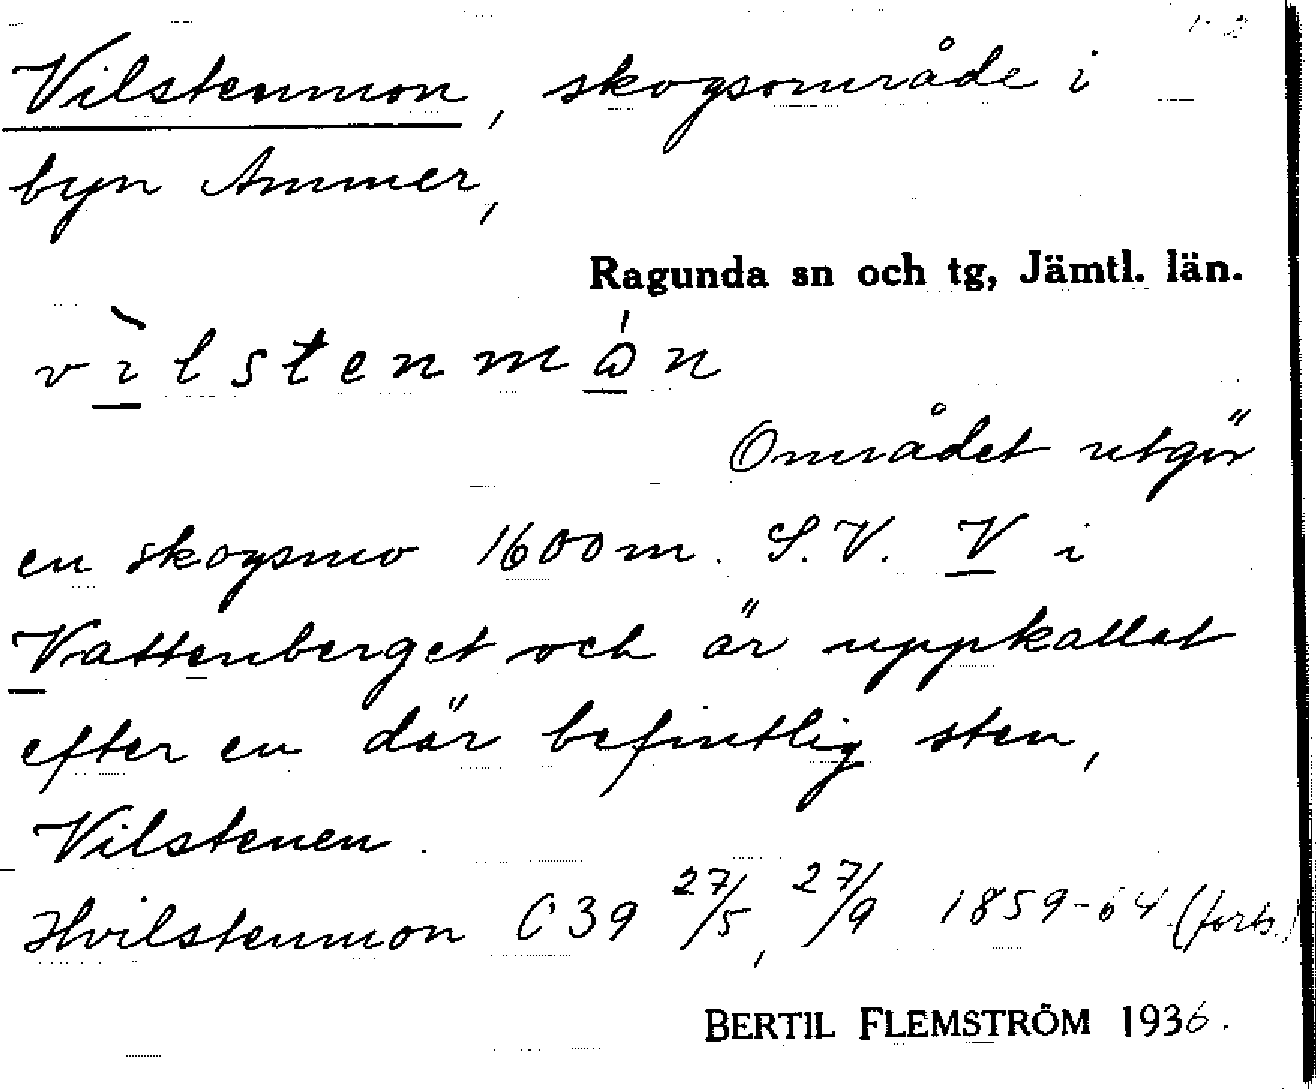 1-2
Vilstenmon, skogsområde i
byn Ammer,
Ragunda sn och tg, Jämtl. län.
vı̀lstenmǻn
Området utgör
en skogsmo 1600 m. S.V. V i
Vattenberget och är uppkallat
efter en där befintlig sten,
Vilstenen.
Hvilstenmon C39 27/5, 27/9 1859-64 (forts.)
BERTIL FLEMSTRÖM 1936.